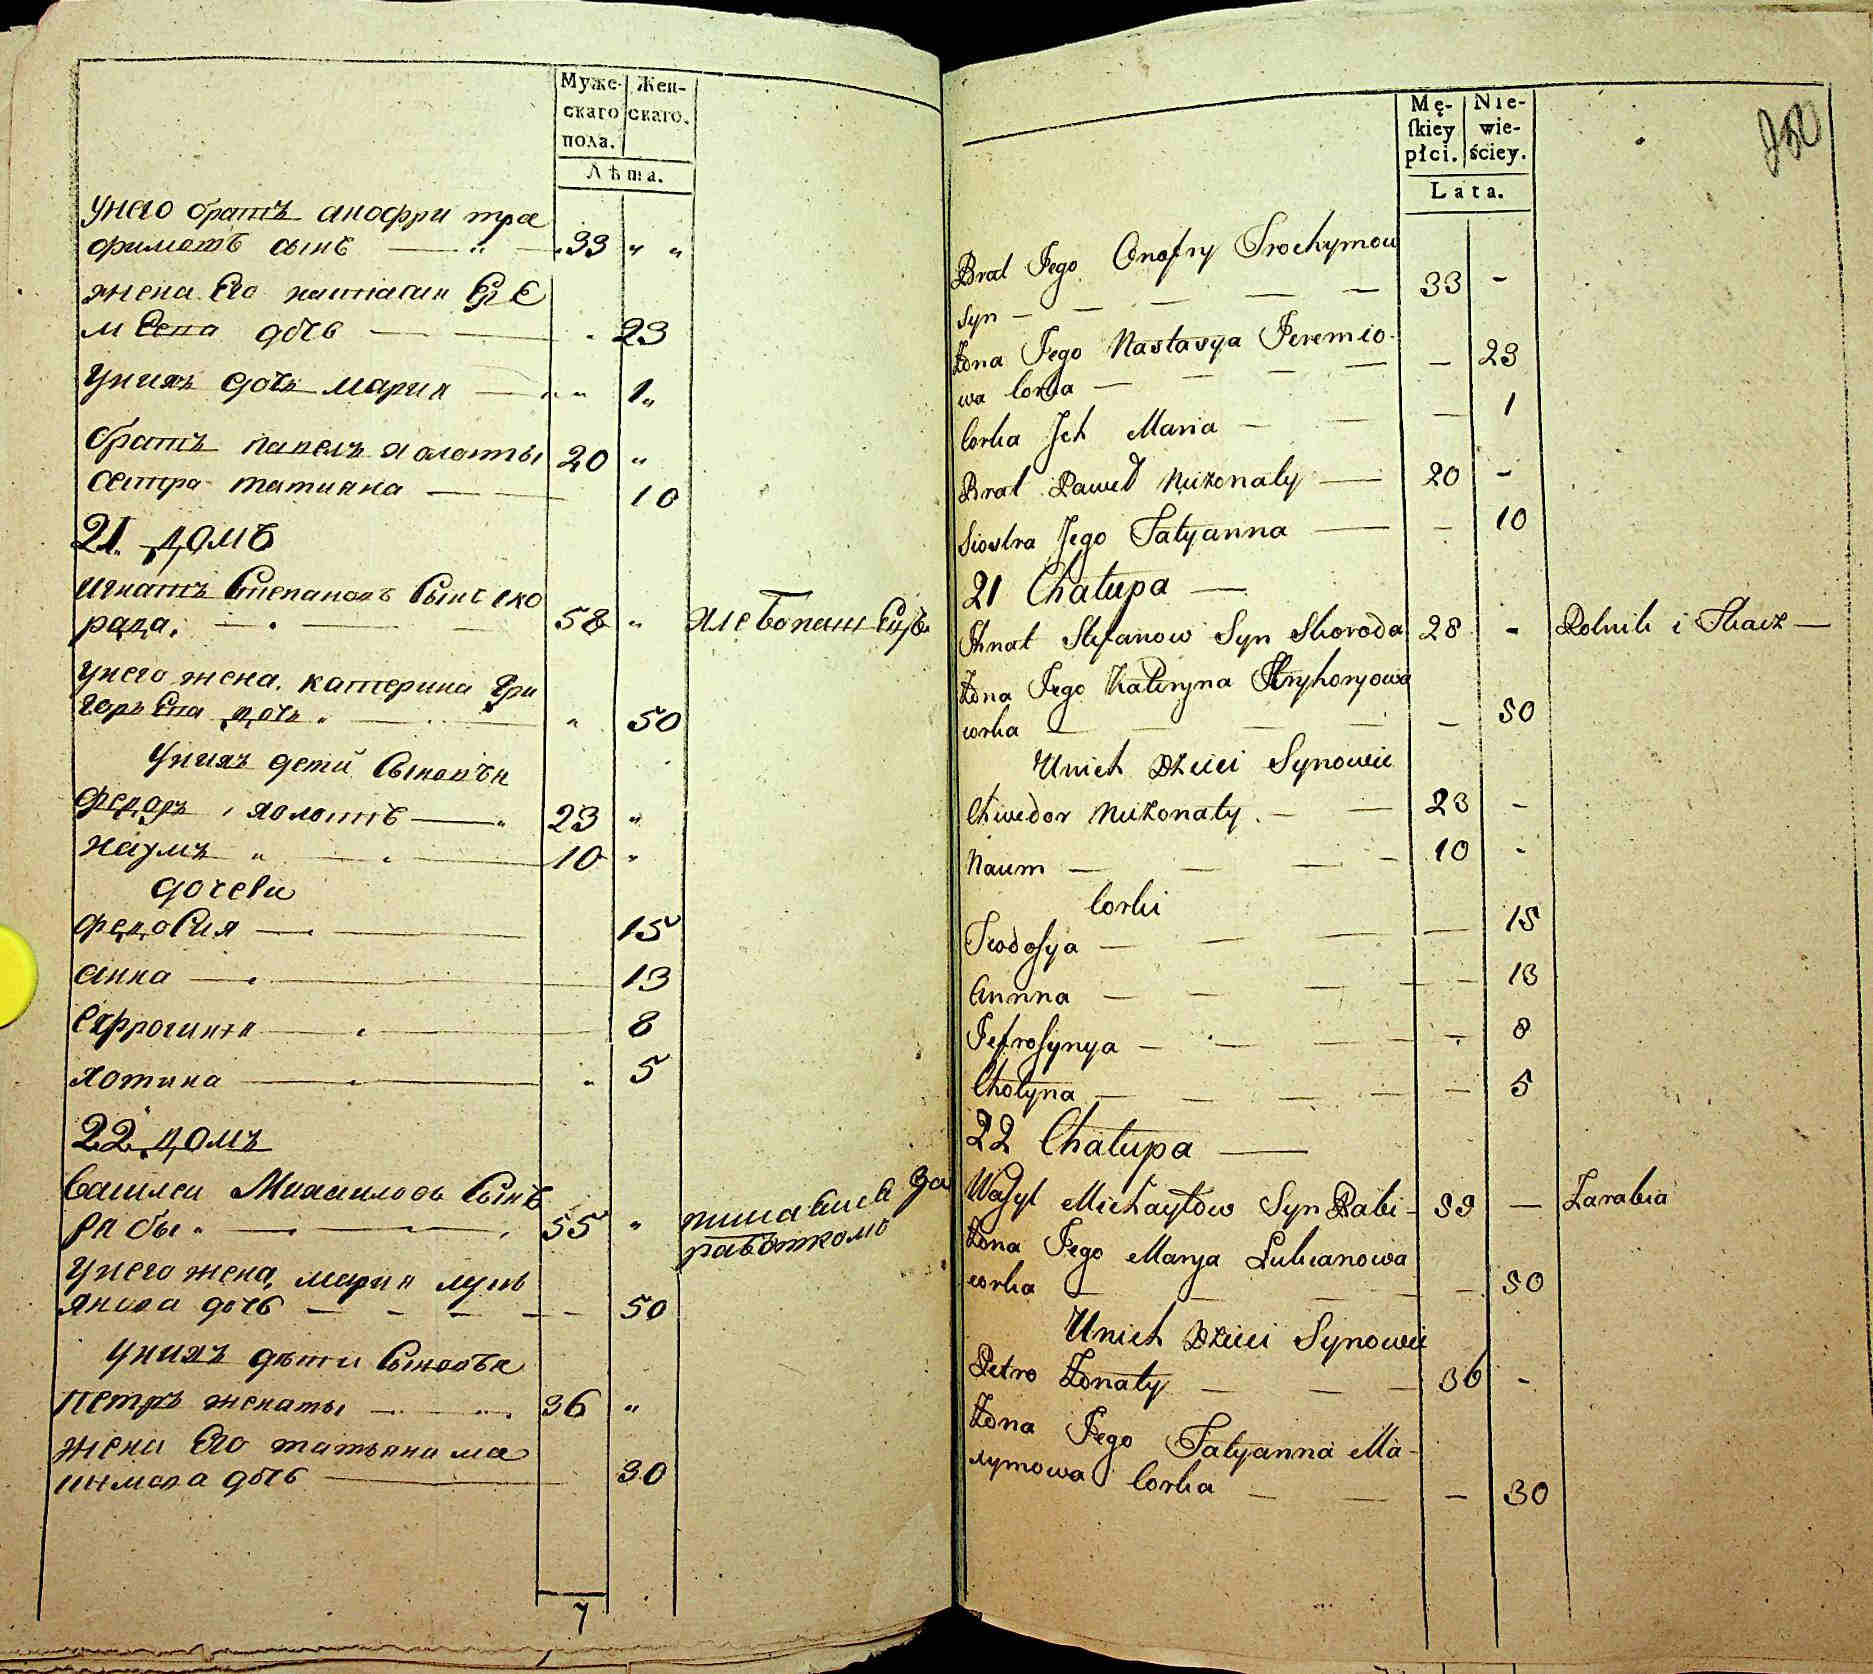 Муже- Жен-
скаго скаго.
пола.
Лѣта.
Унего братъ анофри тра
фимовъ сынъ 33 " "
жена Его настасия Ере
мѣева дочь 23
Унихъ дочь мария 1 "
братъ павелъ холосты 20 "
сестра татияна 10
21. домъ
игнатъ Степановъ Сынъ ско
рада. 58 " хлебопашецъ
Унего жена. катерина Гри
горьева дочь " 50
Унихъ дети Сыновъя
Федоръ холостъ 23 "
Наумъ " 10 "
дочери
федосия 15
анна 13
Ефросиния 8
хотина 5
22 домъ
Василеи Михаиловъ Сынъ
рябы 55 "
работкомо
Унего жена, мария лукь
янова дочь 50
Унихъ дети Сыновъя
петръ женаты 36 "
Жена Его татьяна ма
ымова дочь 30
7
Mę- Nie-
ſkiey wie-
płci. ściey.
Lata.
Brat Jego Onofry Trochymow
Syn 33 -
Żona Jego Nastasya Jeremio-
wa Corka - 23
Corka Jch Maria - 1
Brat Paweł Nieżonaty 20 -
Siostra Jego Tatyanna - 10
21 Chałupa
Ihnat Stefanow Syn Skoroda 28 - Rolnik i Tkacz
Żona Jego Kateryna Hryhoryowa
corka - 50
Unich Dzieci Synowie
Chwedor Nieżonaty 23 -
Naum 10 -
Corki
Teodosya - 15
Annna - 13
Jefrosynya - 8
Chotyna - 5
22 Chałupa
Wasyl Michayłow Syn Rabi- 55 - Zarabia
Żona Jego Marya Łukianowa
corka - 50
Unich Dzieci Synowie
Petro Żonaty 36 -
Żona Jego Tatyanna Ma-
xymowa Corka - 30